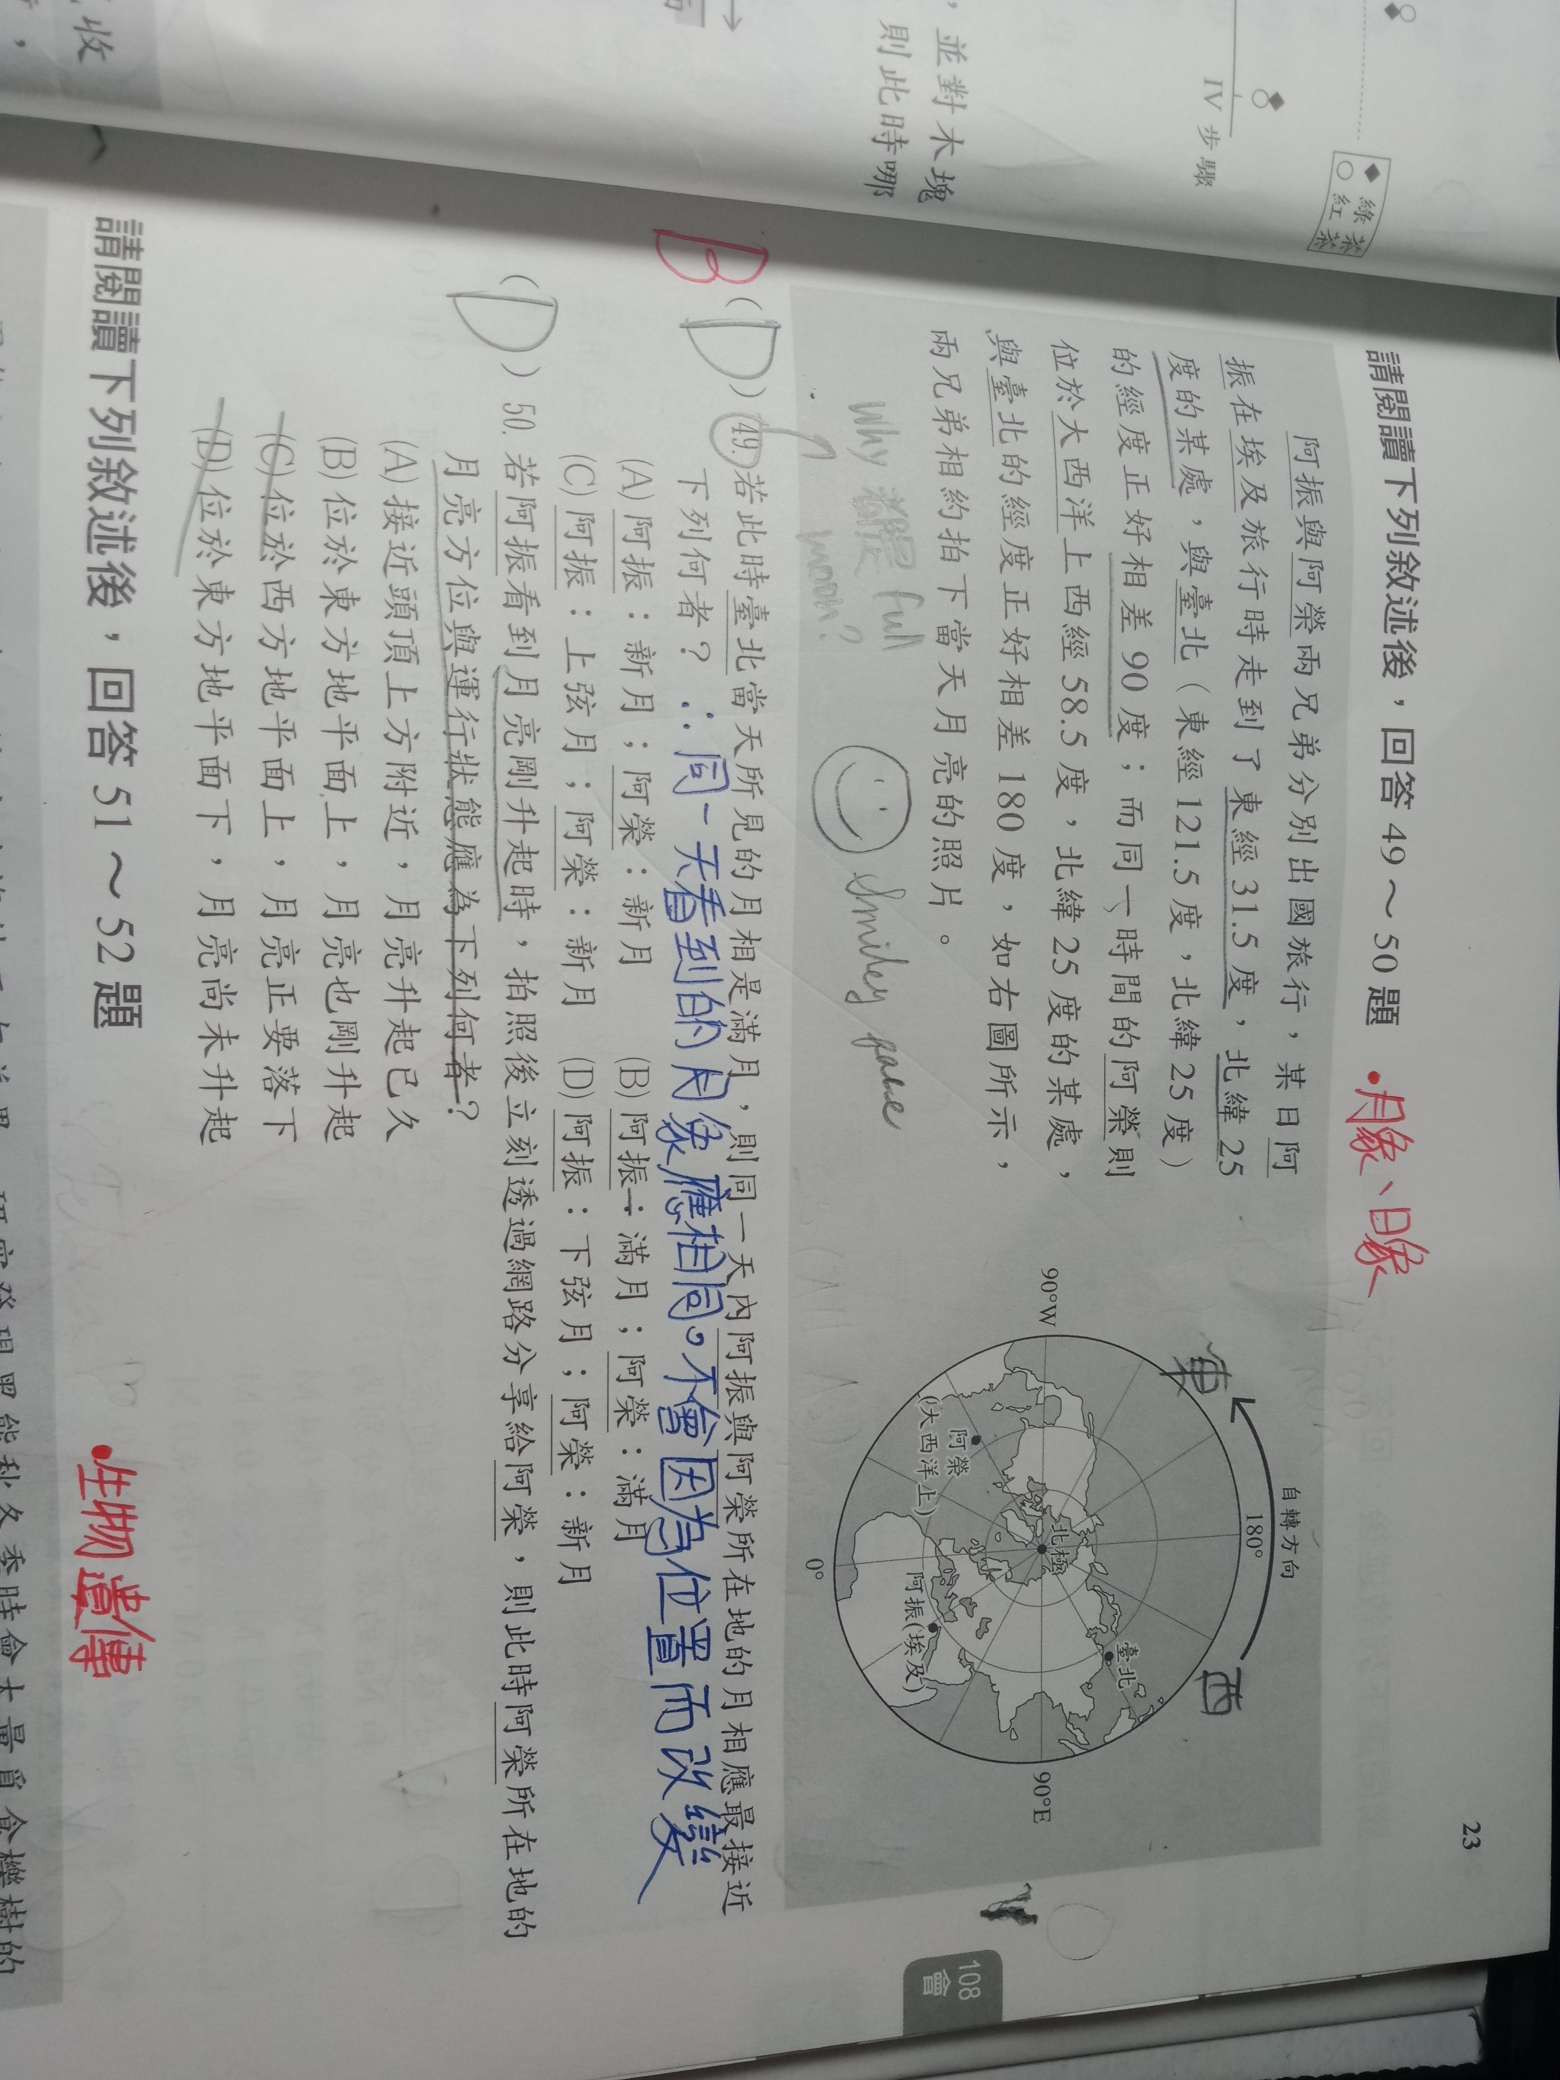 23
108
會
請閱讀下列敘述後，回答 49～50 題
•月象、日象
阿振與阿榮兩兄弟分別出國旅行，某日阿
振在埃及旅行時走到了東經 31.5 度，北緯 25
度的某處，與臺北（東經 121.5 度，北緯 25 度）
的經度正好相差 90 度；而同一時間的阿榮則
位於大西洋上西經 58.5 度，北緯 25 度的某處，
與臺北的經度正好相差 180 度，如右圖所示，
兩兄弟相約拍下當天月亮的照片。
自轉方向
東
西
180°
90°W
90°E
0°
北極
臺北
阿榮
(大西洋上)
阿振(埃及)
why 都是 full
moon?
Smiley
B
(D) 49. 若此時臺北當天所見的月相是滿月，則同一天內阿振與阿榮所在地的月相應最接近
下列何者？
∴同一天看到的月象應相同。不會因為位置而改變
(A) 阿振：新月；阿榮：新月 (B) 阿振：滿月；阿榮：滿月
(C) 阿振：上弦月；阿榮：新月 (D) 阿振：下弦月；阿榮：新月
(D) 50. 若阿振看到月亮剛升起時，拍照後立刻透過網路分享給阿榮，則此時阿榮所在地的
月亮方位與運行狀態應為下列何者？
(A) 接近頭頂上方附近，月亮升起已久
(B) 位於東方地平面上，月亮也剛升起
(C) 位於西方地平面上，月亮正要落下
(D) 位於東方地平面下，月亮尚未升起
請閱讀下列敘述後，回答 51～52 題
•生物遺傳
，並對木塊
則此時哪
IV 步驟
◆ 綠茶
○ 紅茶
收